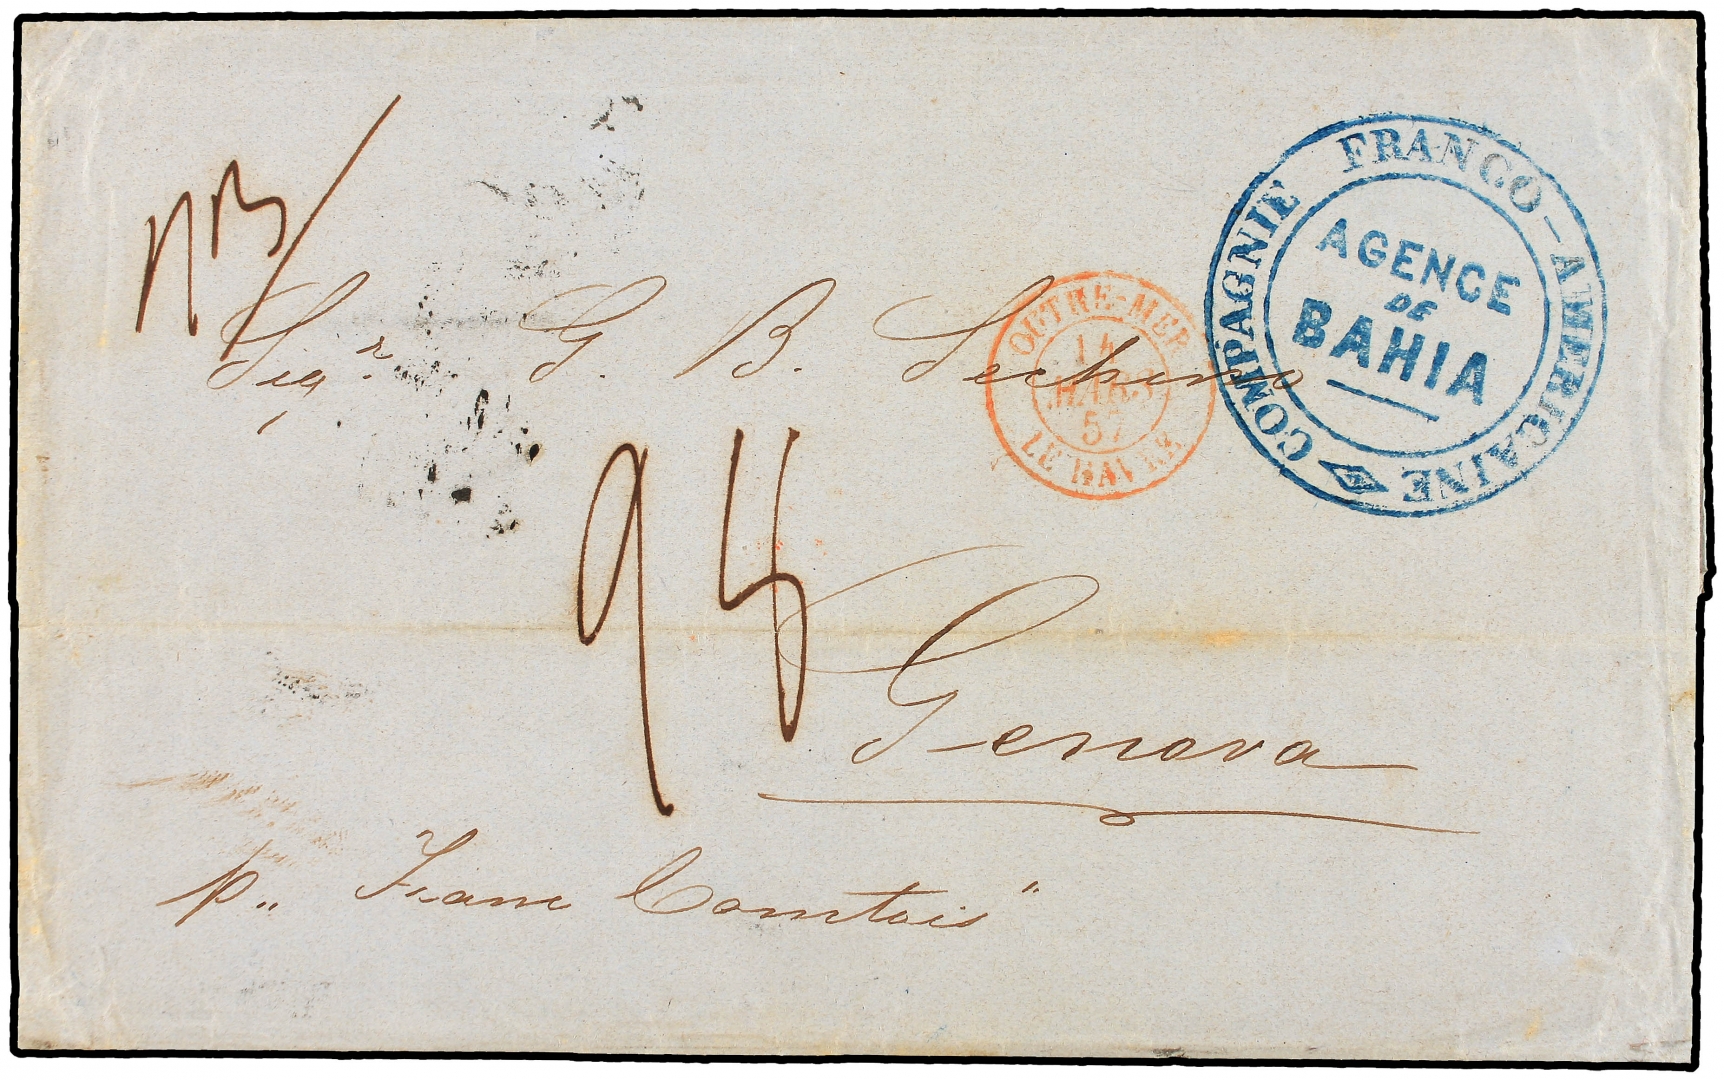 COMPAGNIE FRANCO-AMERICAINE
AGENCE
DE
BAHIA
OUTRE-MER
14
MARS
57
LE HAVRE
Sigr. G. B.
24
Genova
p. "Franc Comtois"